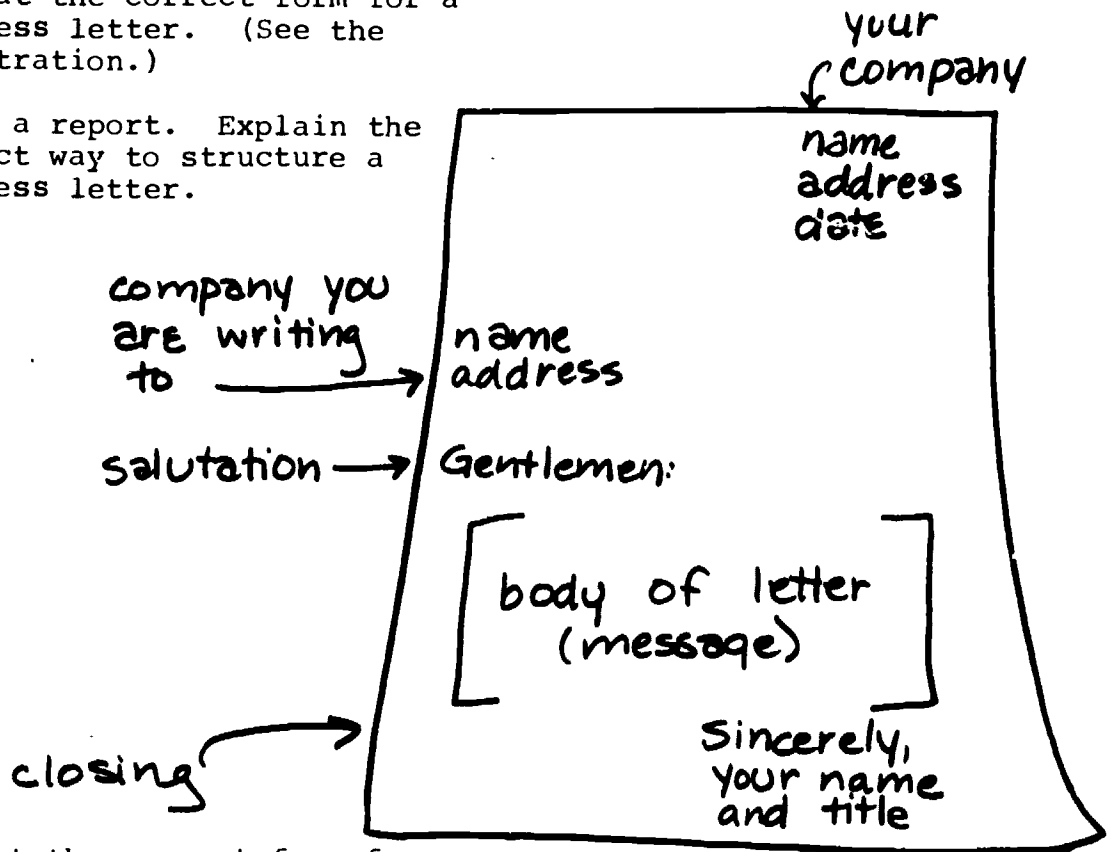 ess letter. (See the
tration.)
a report. Explain the
ct way to structure a
ess letter.
your
company
name
address
date
company you
are writing
to
name
address
salutation
Gentlemen:
body of letter
(message)
closing
Sincerely,
your name
and title